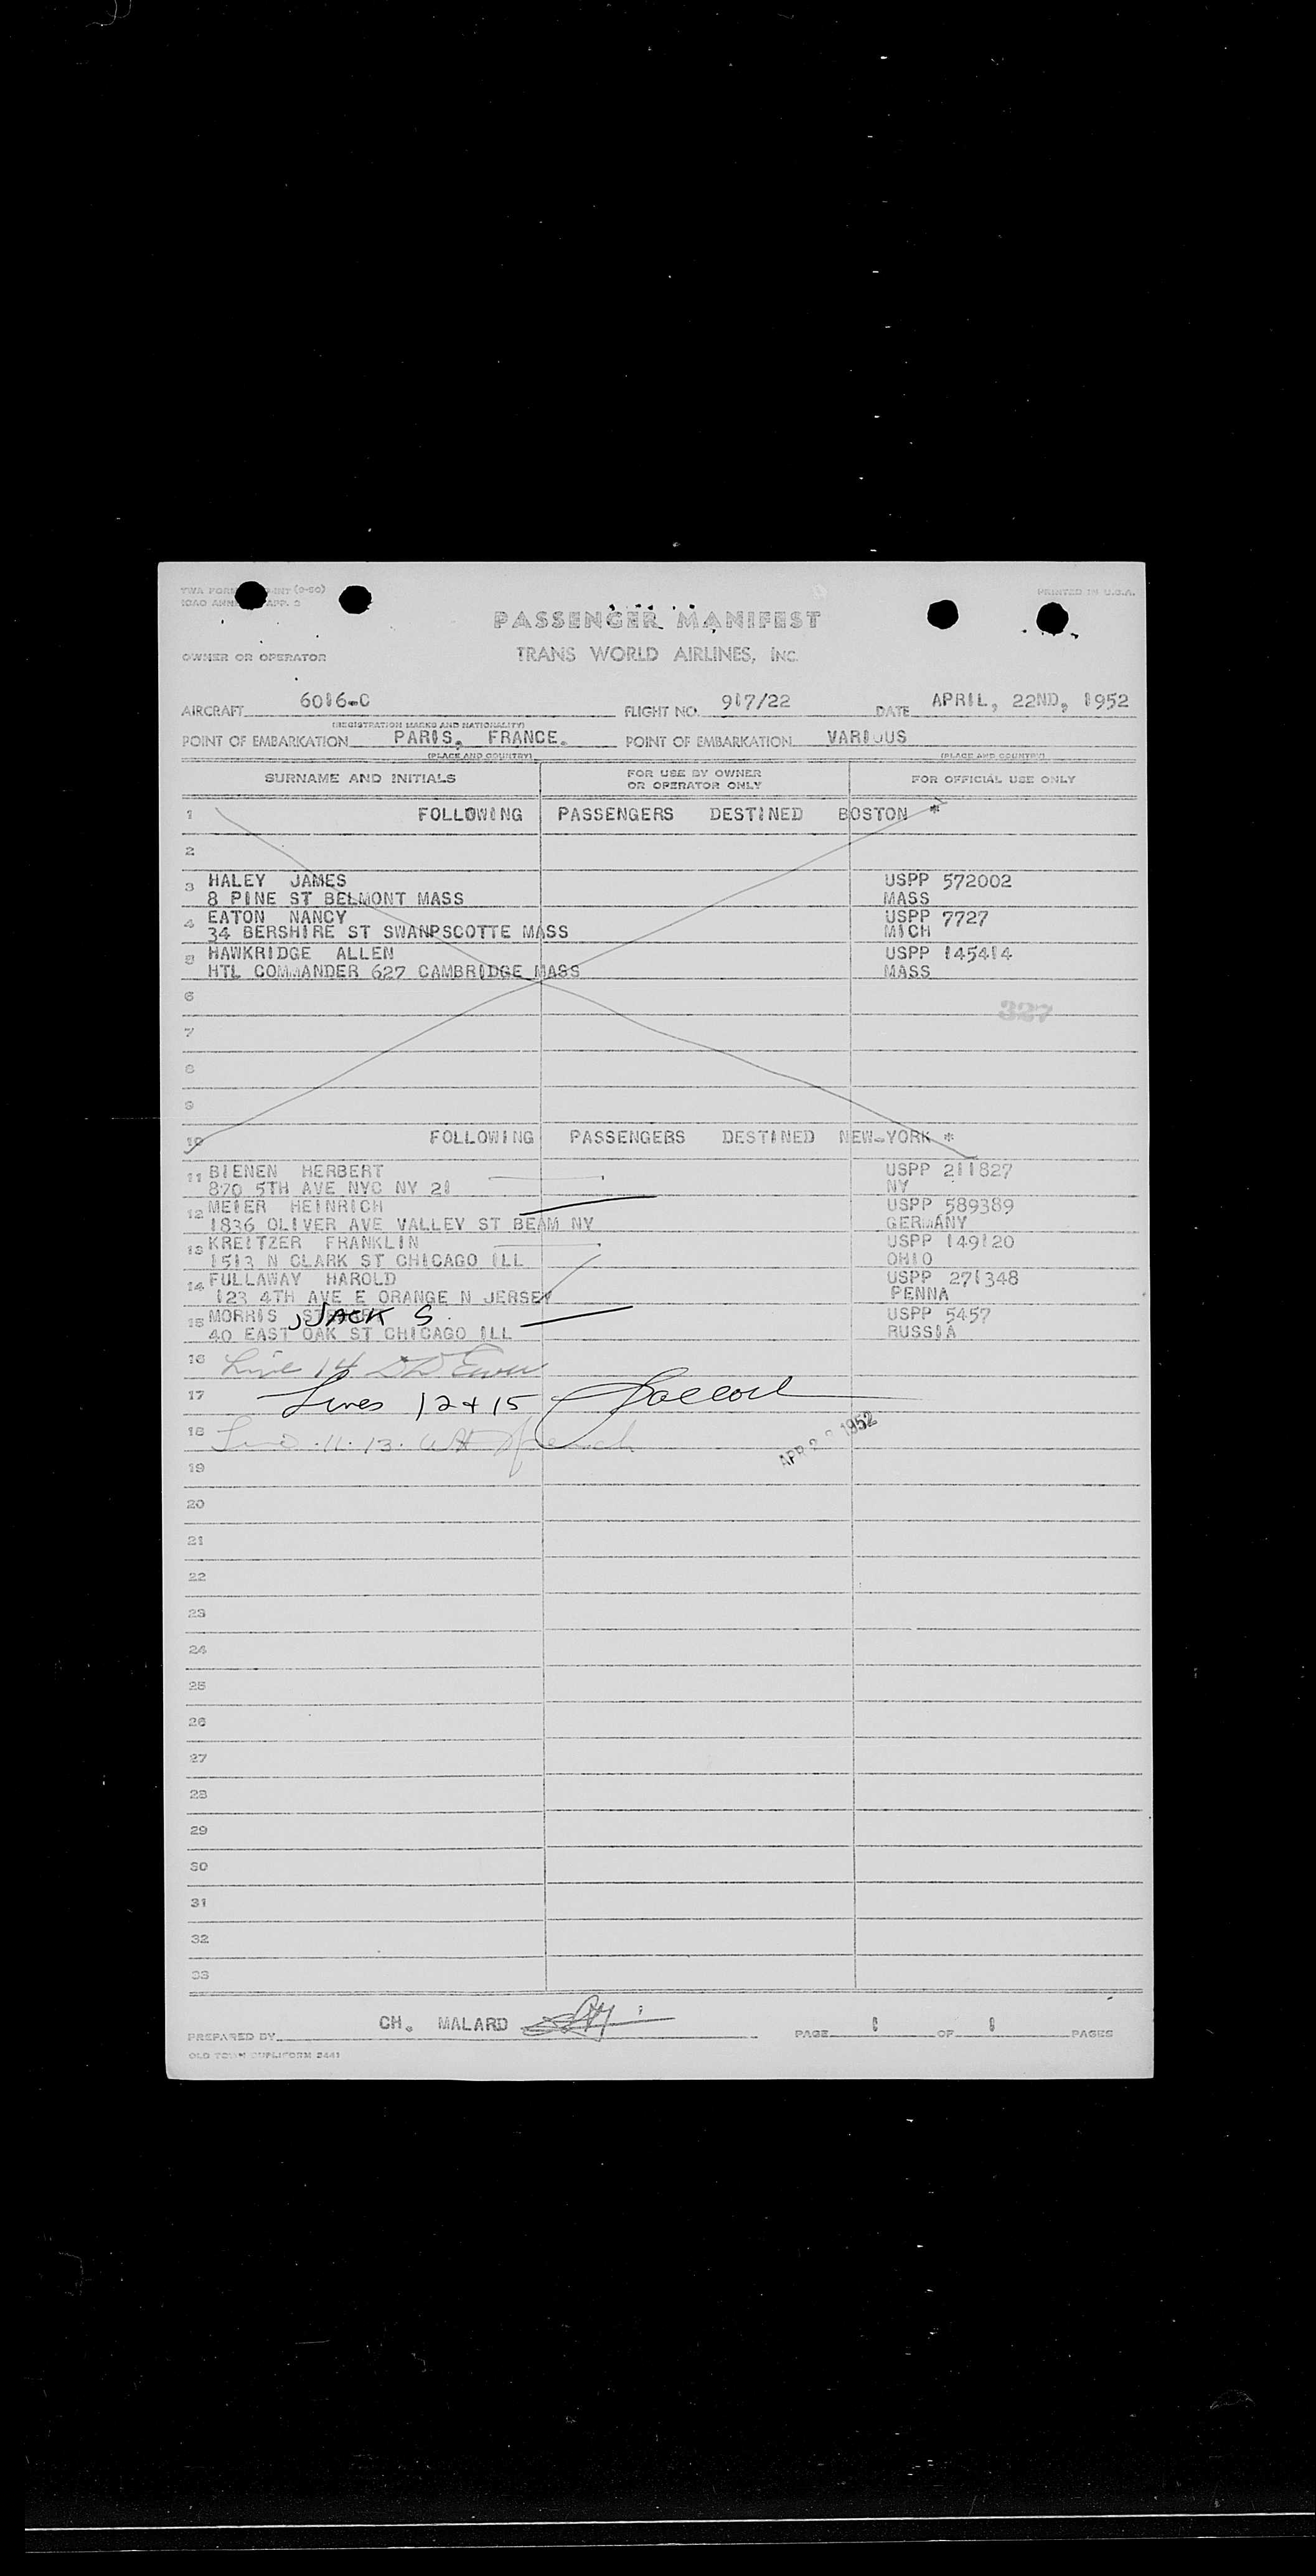 TWA FORM (9-50)
ICAO ANNEX APP. 2
PRINTED IN U.S.A.
PASSENGER MANIFEST
OWNER OR OPERATOR TRANS WORLD AIRLINES, INC.
AIRCRAFT 6016-C FLIGHT NO. 917/22 DATE APRIL, 22ND, 1952
(REGISTRATION MARKS AND NATIONALITY)
POINT OF EMBARKATION PARIS, FRANCE. POINT OF EMBARKATION VARIOUS
(PLACE AND COUNTRY) (PLACE AND COUNTRY)
SURNAME AND INITIALS FOR USE BY OWNER OR OPERATOR ONLY FOR OFFICIAL USE ONLY
1 FOLLOWING PASSENGERS DESTINED BOSTON *
2
3 HALEY JAMES USPP 572002
8 PINE ST BELMONT MASS MASS
4 EATON NANCY USPP 7727
34 BERSHIRE ST SWANPSCOTTE MASS MICH
5 HAWKRIDGE ALLEN USPP 145414
HTL COMMANDER 627 CAMBRIDGE MASS MASS
6
327
7
8
9
10 FOLLOWING PASSENGERS DESTINED NEW-YORK *
11 BIENEN HERBERT USPP 211827
870 5TH AVE NYC NY 21 NY
12 MEIER HEINRICH USPP 589389
1836 OLIVER AVE VALLEY ST BEAM NY GERMANY
13 KREITZER FRANKLIN USPP 149120
1513 N CLARK ST CHICAGO ILL OHIO
14 FULLAWAY HAROLD USPP 271348
123 4TH AVE E ORANGE N JERSEY PENNA
15 MORRIS JACK S. USPP 5457
40 EAST OAK ST CHICAGO ILL RUSSIA
16 Line 14
17 Lines 12 + 15
18 11. 13.
APR 1952
19
20
21
22
23
24
25
26
27
28
29
30
31
32
33
PREPARED BY CH. MALARD PAGE 1 OF 1 PAGES
OLD TOWN DUPLIFORM 2441